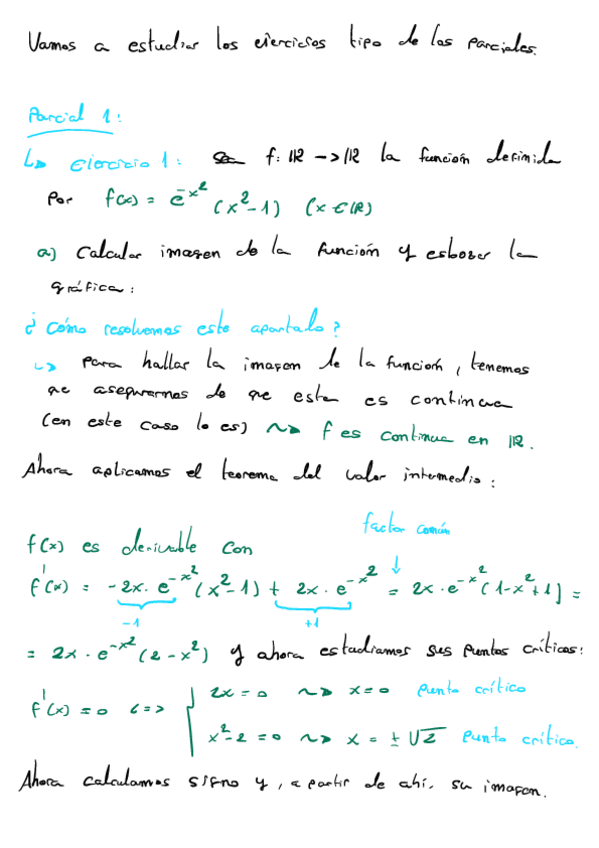 Vamos a estudiar los ejercicios tipo de los parciales.
Parcial 1:
↳ Ejercicio 1: Sea f: ℝ -> ℝ la función definida
por f(x) = e^{-x²} (x²-1) (x ∈ ℝ)
a) Calcular imagen de la función y esbozar la
gráfica:
¿Cómo resolvemos este apartado?
↳ Para hallar la imagen de la función, tenemos
que asegurarnos de que esta es continua
(en este caso lo es) ~> f es continua en ℝ.
Ahora aplicamos el teorema del valor intermedio:
factor común
↓
f(x) es derivable con
f'(x) = -2x · e^{-x²} (x²-1) + 2x · e^{-x²} = 2x · e^{-x²} (1-x²+1] =
-1 +1
= 2x · e^{-x²} (2-x²) y ahora estudiamos sus puntos críticos:
f'(x) = 0 <=> { 2x = 0 ~> x = 0 punto crítico
x²-2 = 0 ~> x = ±√2 punto crítico.
Ahora calculamos signo y, a partir de ahí, su imagen.